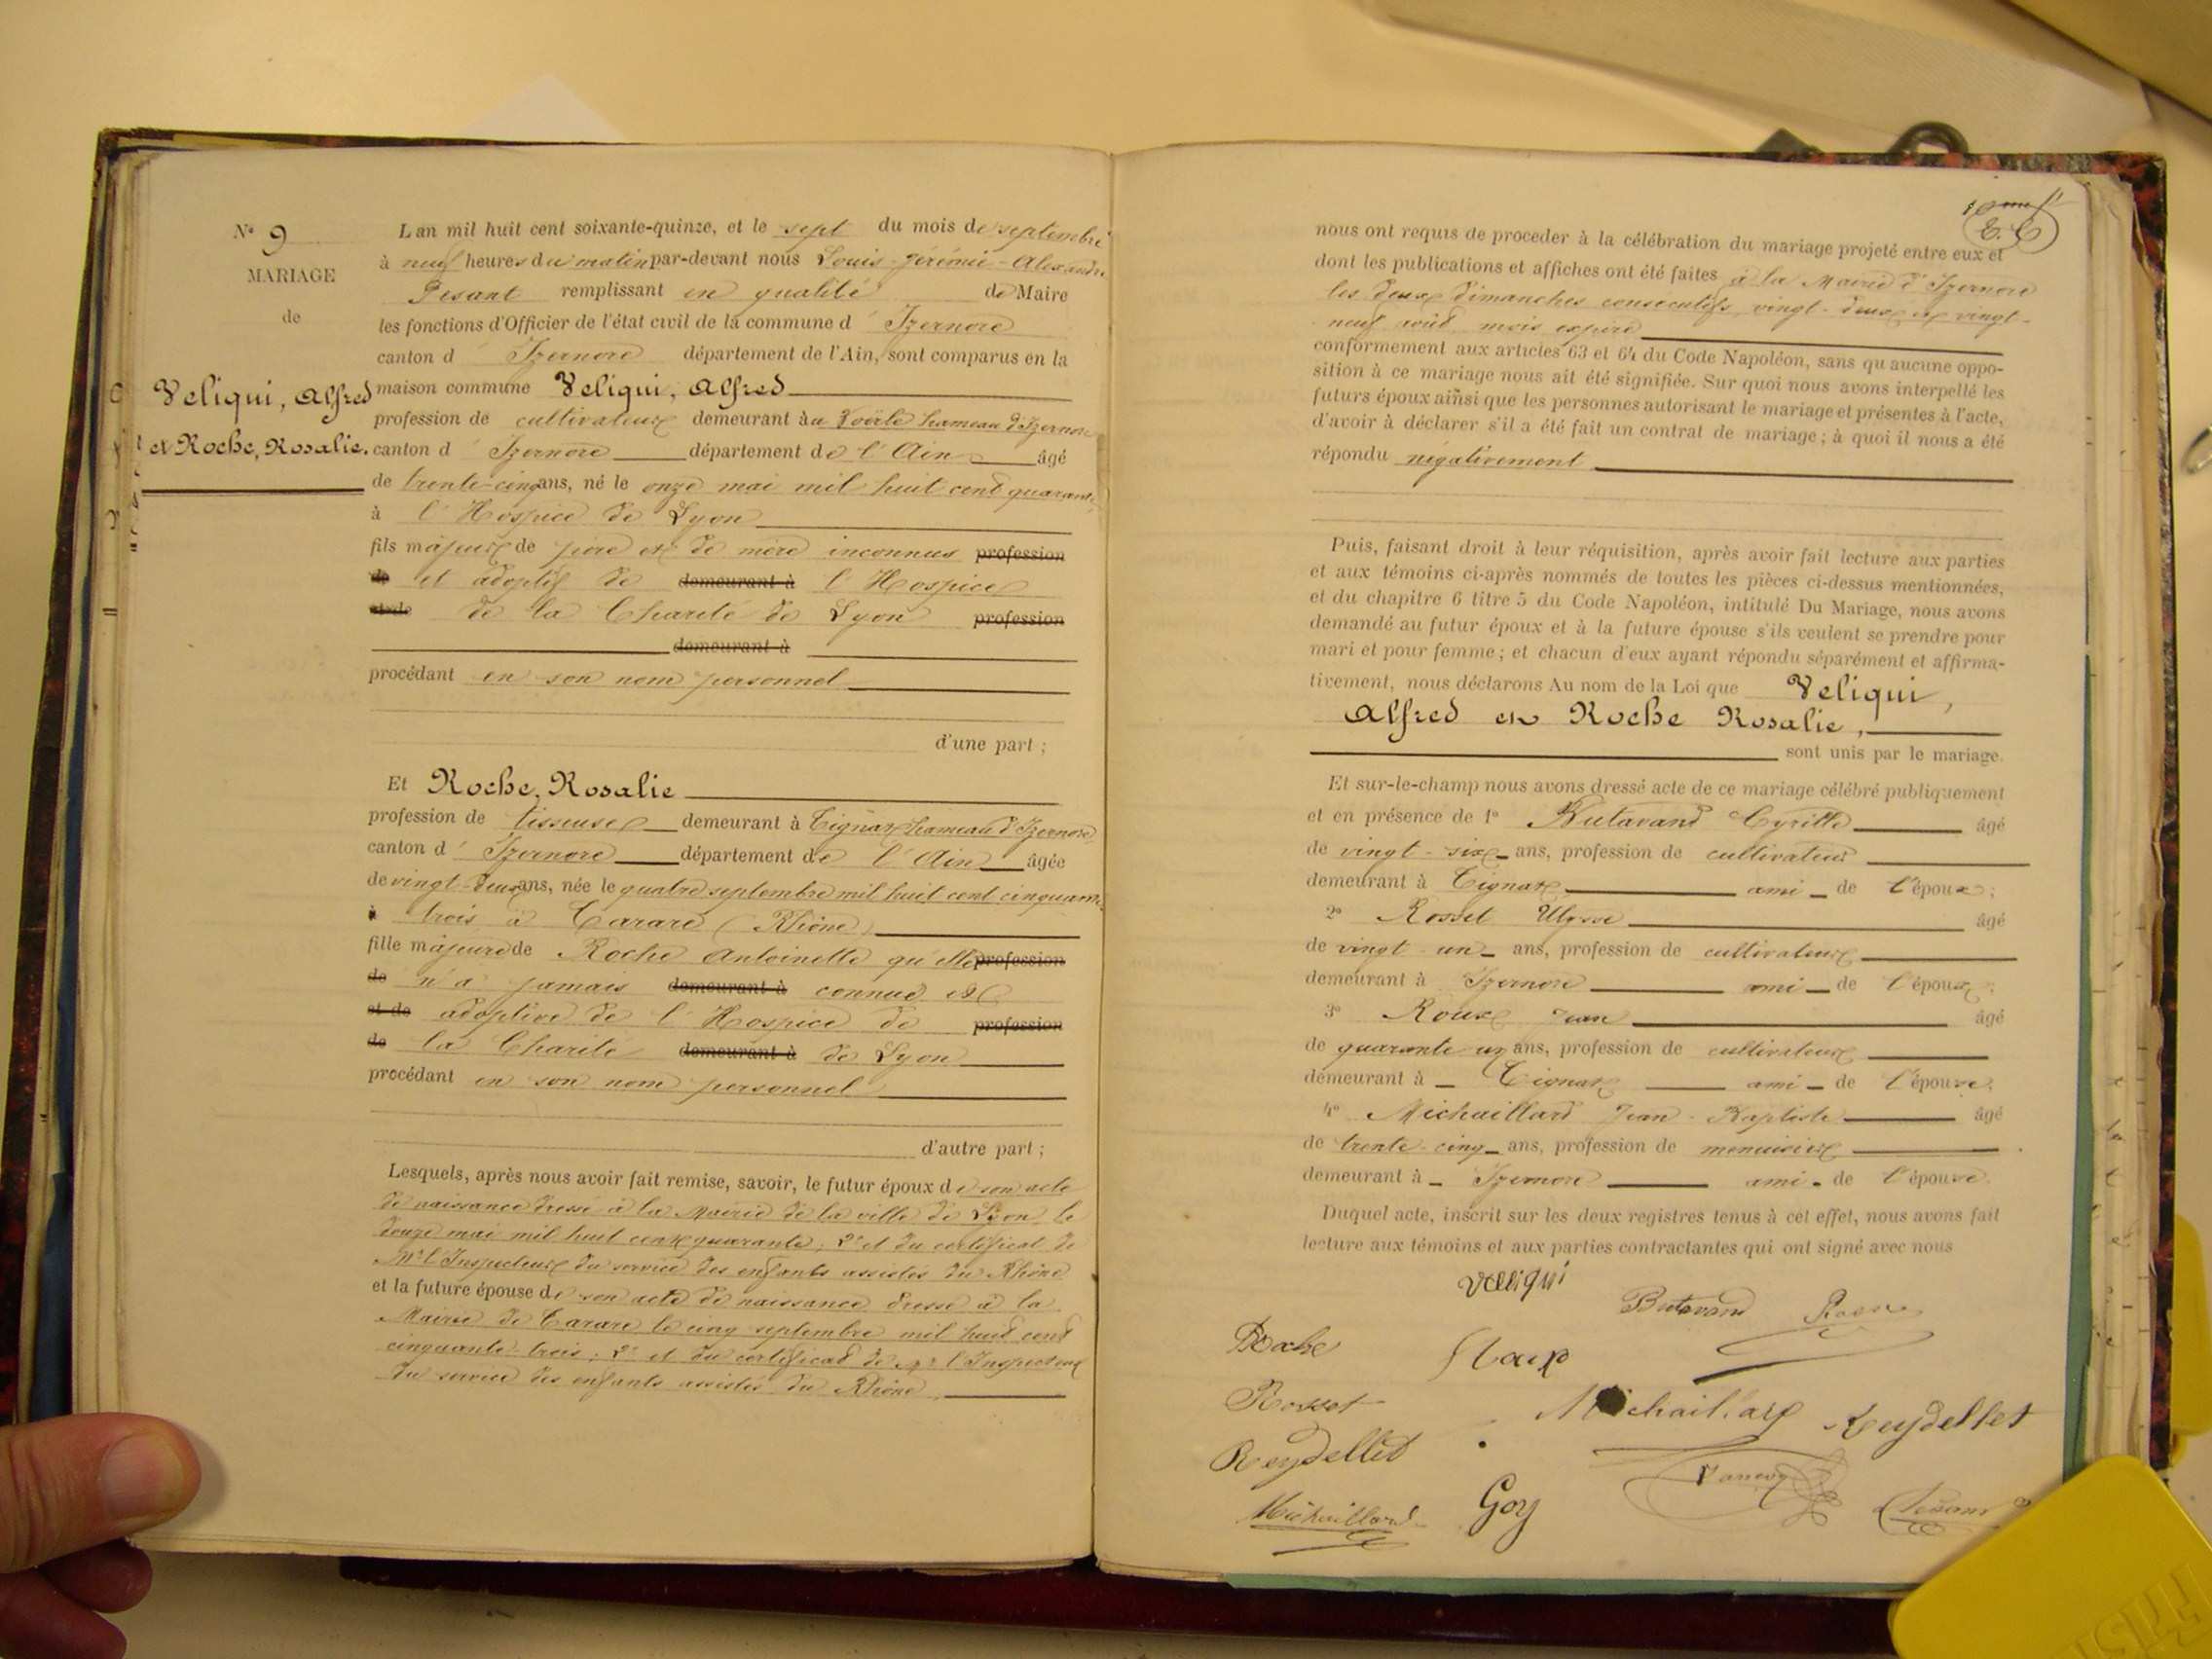 N° 9
MARIAGE
de
Veliqui, Alfred
et Roche, Rosalie.
L an mil huit cent soixante-quinze, et le sept du mois de septembre
à neuf heures du matin par-devant nous Louis-Jérémie-Alexandre
Pesant remplissant en qualité de Maire
les fonctions d'Officier de l'état civil de la commune d' Izernore
canton d' Izernore département de l'Ain, sont comparus en la
maison commune Veliqui, Alfred
profession de cultivateur demeurant au Voërle hameau d'Izernore
canton d' Izernore département de l'Ain âgé
de trente-cinq ans, né le onze mai mil huit cent quarante
à l'Hospice de Lyon
fils majeur de père et de mère inconnus profession
de et adoptif de demeurant à l'Hospice
et de de la Charité de Lyon profession
demeurant à
procédant en son nom personnel
d'une part ;
Et Roche, Rosalie
profession de tisseuse demeurant à Tignat hameau d'Izernore
canton d' Izernore département de l'Ain âgée
de vingt-deux ans, née le quatre septembre mil huit cent cinquante
à trois à Tarare (Rhône)
fille majeure de Roche Antoinette qu'elle profession
de n'a jamais demeurant à connue et
et de adoptive de l'Hospice de profession
de la Charité demeurant à de Lyon
procédant en son nom personnel
d'autre part ;
Lesquels, après nous avoir fait remise, savoir, le futur époux de son acte
de naissance dressé à la Mairie de la ville de Lyon le
douze mai mil huit cent quarante ; 2° et du certificat de
Mr l'Inspecteur du service des enfants assistés du Rhône
et la future épouse de son acte de naissance dressé à la
Mairie de Tarare le cinq septembre mil huit cent
cinquante trois ; 2° et du certificat de Mr l'Inspecteur
du service des enfants assistés du Rhône,
nous ont requis de proceder à la célébration du mariage projeté entre eux et
dont les publications et affiches ont été faites à la Mairie d'Izernore
les deux dimanches consécutifs, vingt-deux et vingt-
neuf août mois expiré
conformement aux articles 63 et 64 du Code Napoléon, sans qu aucune oppo-
sition à ce mariage nous ait été signifiée. Sur quoi nous avons interpellé les
futurs époux ainsi que les personnes autorisant le mariage et présentes à l'acte,
d'avoir à déclarer s'il a été fait un contrat de mariage ; à quoi il nous a été
répondu négativement
Puis, faisant droit à leur réquisition, après avoir fait lecture aux parties
et aux témoins ci-après nommés de toutes les pièces ci-dessus mentionnées,
et du chapitre 6 titre 5 du Code Napoléon, intitulé Du Mariage, nous avons
demandé au futur époux et à la future épouse s'ils veulent se prendre pour
mari et pour femme ; et chacun d'eux ayant répondu séparément et affirma-
tivement, nous déclarons Au nom de la Loi que Veliqui,
Alfred et Roche Rosalie,
sont unis par le mariage.
Et sur-le-champ nous avons dressé acte de ce mariage célébré publiquement
et en présence de 1° Butavand Cyrille âgé
de vingt-six ans, profession de cultivateur
demeurant à Tignat ami de l'époux ;
2° Rosset Ulysse âgé
de vingt un ans, profession de cultivateur
demeurant à Izernore ami de l'époux ;
3° Roux Jean âgé
de quarante un ans, profession de cultivateur
demeurant à Tignat ami de l'épouse ;
4° Michaillard Jean-Baptiste âgé
de trente-cinq ans, profession de menuisier
demeurant à Izernore ami de l'épouse.
Duquel acte, inscrit sur les deux registres tenus à cet effet, nous avons fait
lecture aux témoins et aux parties contractantes qui ont signé avec nous
Veliqui
Butavand
Roche
Rosset
Michaillard
Reydellet
Reydellet
Michaillard
Goy
Pesant